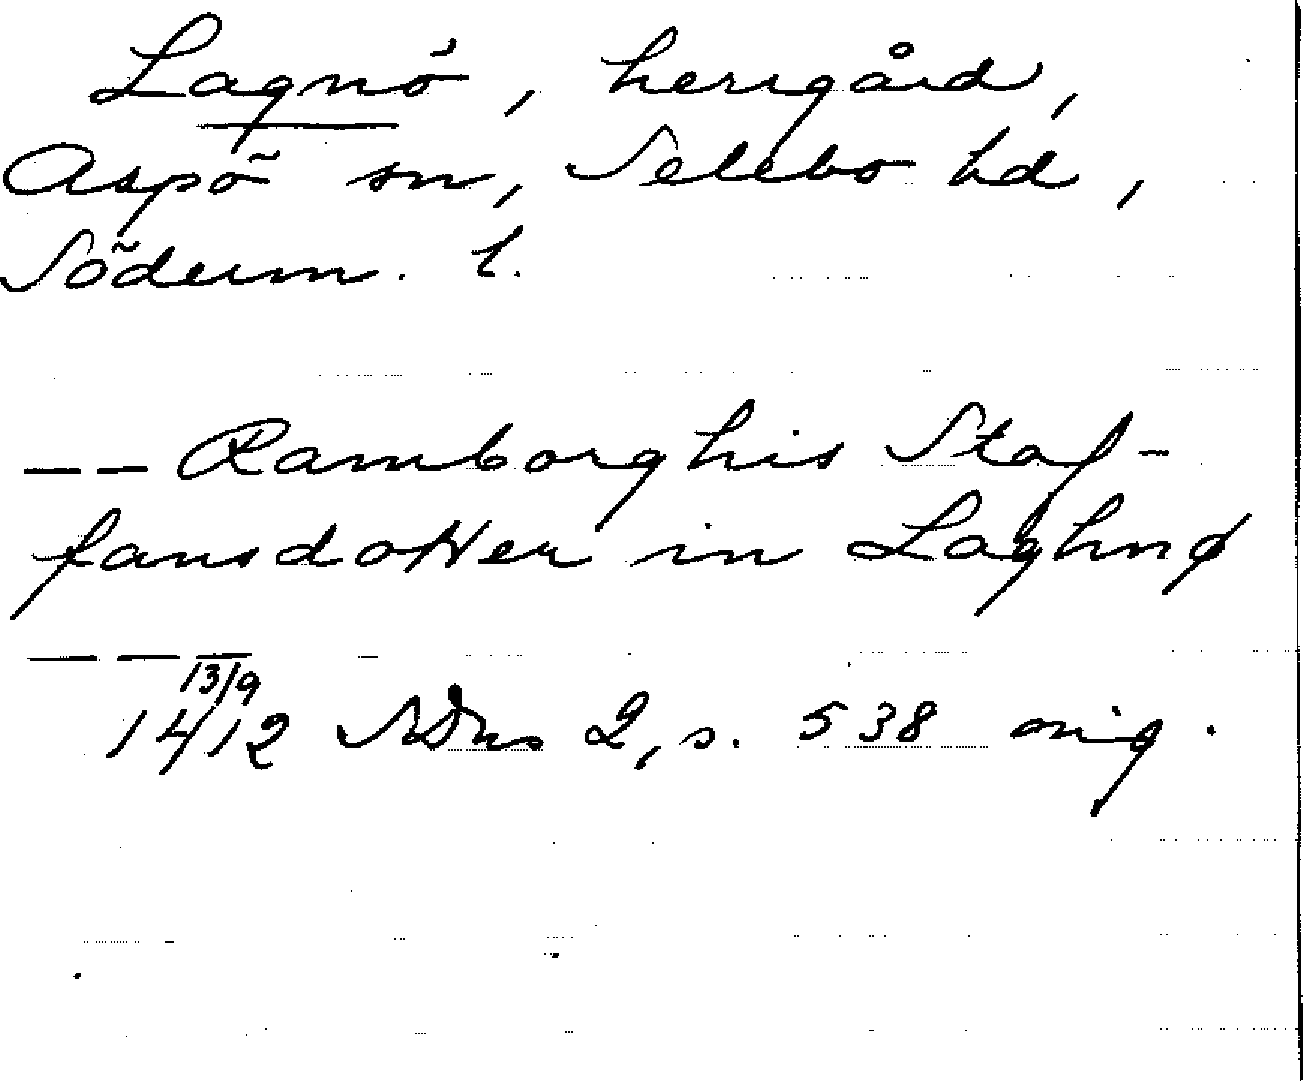 Lagnö, herrgård,
Aspö sn, Selebo hd,
Söderm. l.
— — Ramborghis Staf-
fansdotter in Laghnø
— — —
13/9
1412 SDns 2, s. 538 orig.